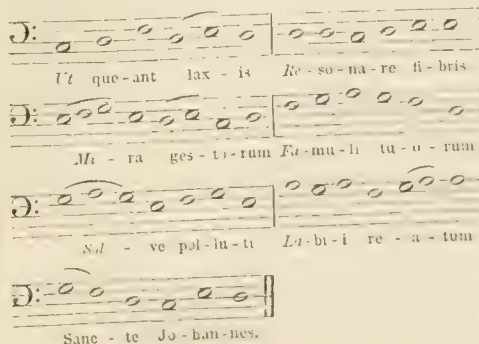 Ut que-ant lax-is Re-so-na-re fi-bris
Mi-ra ges-to-rum Fa-mu-li tu-o-rum
Sol-ve pol-lu-ti La-bi-i re-a-tum
Sanc-te Jo-han-nes.